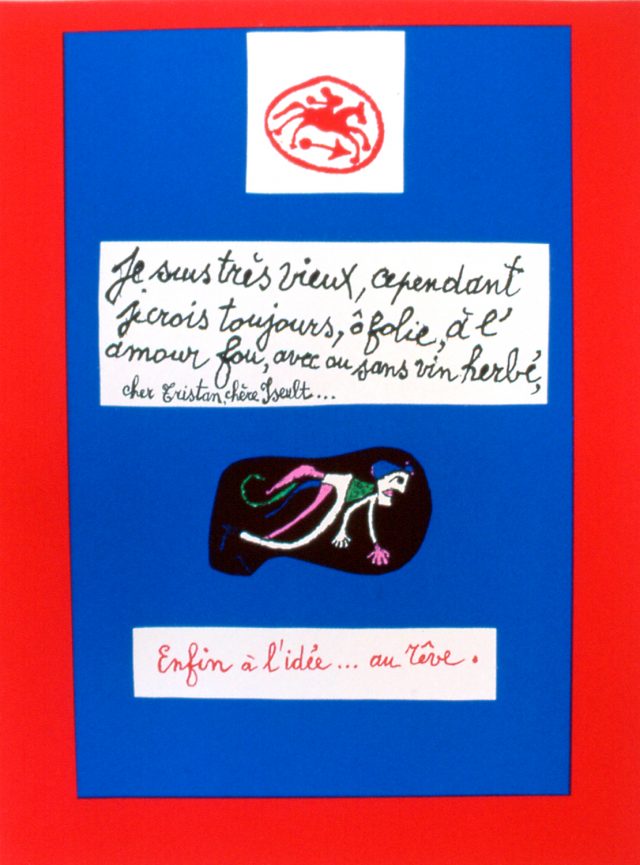 Je suis très vieux, cependant
je crois toujours, ô folie, à l'
amour fou, avec ou sans vin herbé,
cher Tristan, chère Iseult...
Enfin à l'idée... au rêve.